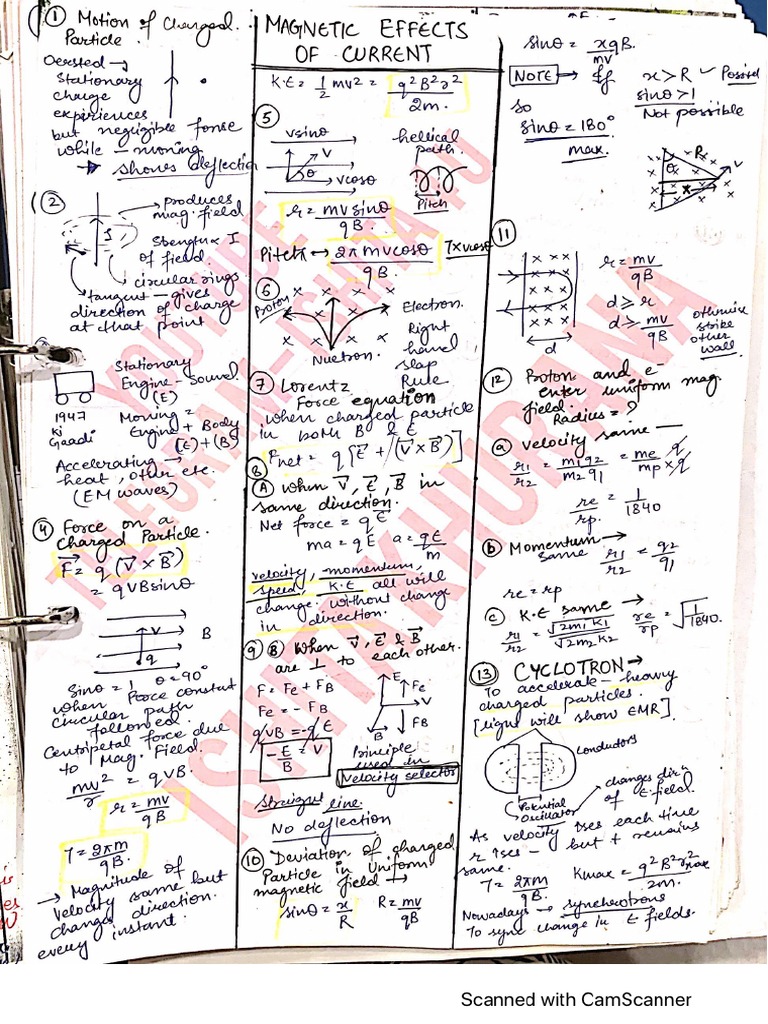 ① Motion of Charged
Particle
Oersted →
Stationary
charge
experiences
but negligible force
while - moving
→ shows deflection
②
produces
mag. field
I
Strength ∝ I
of field
circular rings
tangent - gives
direction of charge
at that point
Stationary
Engine - Sound
(E)
1947
ki
Gaadi
Moving =
Engine + Body
(E) + (B)
Accelerating →
heat, other etc.
(EM waves)
④ Force on a
Charged Particle.
F = q (V × B)
= qVBsinθ
V
B
q
Sinθ = 1 θ = 90°
when Force constant
circular path
followed.
Centipetal force due
to Mag. Field.
mv²/r = qVB.
r = mv/qB
T = 2πm/qB.
→ Magnitude of
velocity same but
changes direction.
every instant.
MAGNETIC EFFECTS
OF CURRENT
K.E = 1/2 mv² = q²B²r²/2m.
⑤
vsinθ
V
θ
vcosθ
helical
path.
Pitch
r = mvsinθ/qB.
Pitch → 2πmvcosθ/qB. T×vcosθ
⑥
Proton
Electron.
Nuetron.
Right
hand
slap
Rule
⑦ Lorentz
Force equation
when charged particle
in both B & E
Fnet = q[E + (V × B)]
8
Ⓐ When V, E, B in
same direction.
Net force = qE
ma = qE a = qE/m
velocity, momentum,
speed, K.E all will
change without change
in direction.
⑨ ⑧ When V, E & B
are ⊥ to each other.
F = FE + FB
FE = - FB
qVB = -qE
-E/B = V
E
Fe
V
B
FB
Principle
used in
Velocity selector
Straight line.
No deflection
⑩ Deviation of charged
Particle in Uniform
magnetic field →
sinθ = x/R R = mv/qB
sinθ = xqB./mv
NOTE → If x > R ✓ Possible
sinθ > 1
Not possible
so
sinθ = 180°
max.
R
θ
V
x
⑪
d
r = mv/qB
d ≥ r
d ≥ mv/qB
otherwise
strike
other
wall
⑫ Proton and e-
enter uniform mag
field.
Radius = ?
ⓐ velocity same —
r1/r2 = m1q2/m2q1 = me × q/mp × q
re/rp. = 1/1840
ⓑ Momentum →
same r1/r2 = q2/q1
re = rp
ⓒ K.E same →
r1/r2 = √2m1K1/√2m2K2 re/rp = √1/1840.
⑬ CYCLOTRON →
To accelerate - heavy
charged particles.
[light will show EMR]
conductors
Potential
Oscillator
changes dirⁿ
of E field.
As velocity ↑ses each time
r ↑ses - but t remains
same.
T = 2πm/qB. Kmax = q²B²r²max/2m.
Nowadays → synchrotrons
To sync change in E fields.
YOUTUBE
TELEGRAM - ISHITA YU
ISHITA KHURANA
Scanned with CamScanner